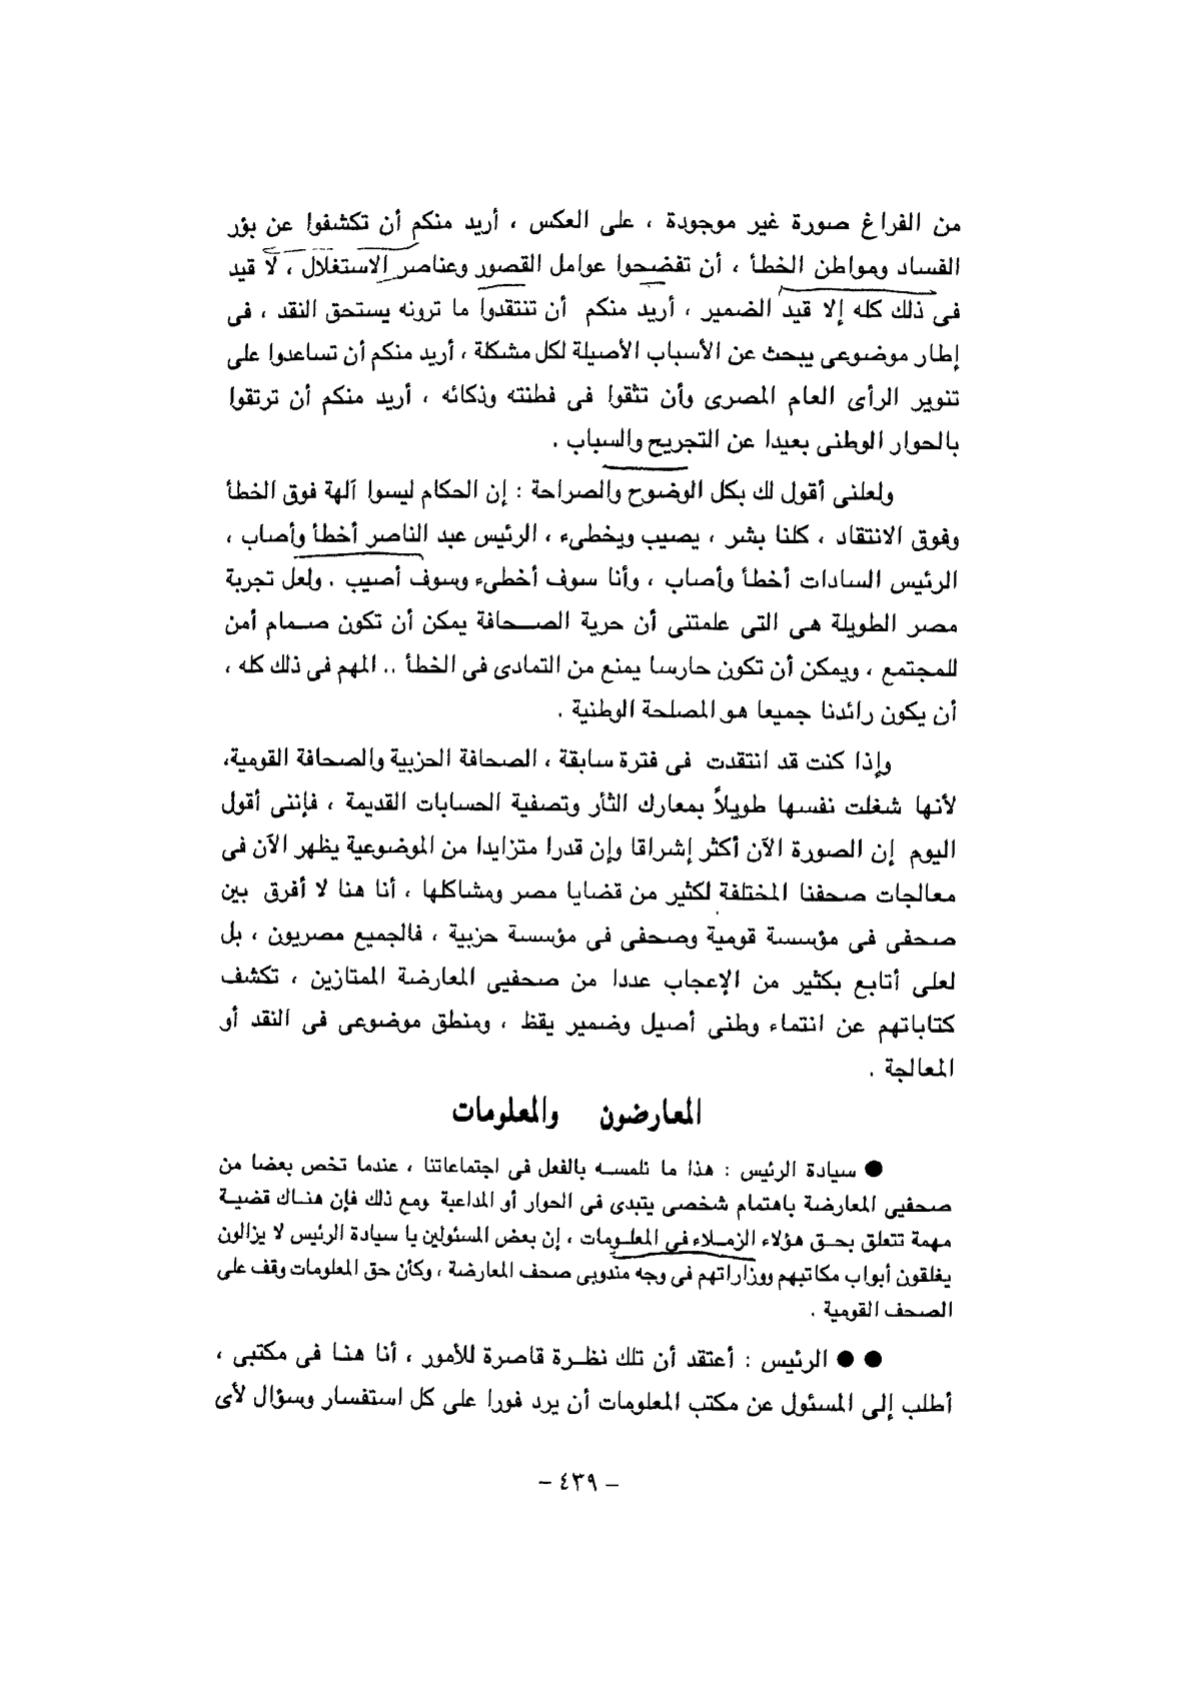 من الفراغ صورة غير موجودة ، على العكس ، أريد منكم أن تكشفوا عن بؤر
الفساد ومواطن الخطأ ، أن تفضحوا عوامل القصور وعناصر الاستغلال ، لا قيد
فى ذلك كله إلا قيد الضمير ، أريد منكم أن تنتقدوا ما ترونه يستحق النقد ، فى
إطار موضوعى يبحث عن الأسباب الأصيلة لكل مشكلة ، أريد منكم أن تساعدوا على
تنوير الرأى العام المصرى وأن تثقوا فى فطنته وذكائه ، أريد منكم أن ترتقوا
بالحوار الوطنى بعيدا عن التجريح والسباب .
ولعلنى أقول لك بكل الوضوح والصراحة : إن الحكام ليسوا آلهة فوق الخطأ
وفوق الانتقاد ، كلنا بشر ، يصيب ويخطىء ، الرئيس عبد الناصر أخطأ وأصاب ،
الرئيس السادات أخطأ وأصاب ، وأنا سوف أخطىء وسوف أصيب . ولعل تجربة
مصر الطويلة هى التى علمتنى أن حرية الصحافة يمكن أن تكون صمام أمن
للمجتمع ، ويمكن أن تكون حارسا يمنع من التمادى فى الخطأ .. المهم فى ذلك كله ،
أن يكون رائدنا جميعا هو المصلحة الوطنية .
وإذا كنت قد انتقدت فى فترة سابقة ، الصحافة الحزبية والصحافة القومية،
لأنها شغلت نفسها طويلاً بمعارك الثأر وتصفية الحسابات القديمة ، فإننى أقول
اليوم إن الصورة الآن أكثر إشراقا وإن قدرا متزايدا من الموضوعية يظهر الآن فى
معالجات صحفنا المختلفة لكثير من قضايا مصر ومشاكلها ، أنا هنا لا أفرق بين
صحفى فى مؤسسة قومية وصحفى فى مؤسسة حزبية ، فالجميع مصريون ، بل
لعلى أتابع بكثير من الإعجاب عددا من صحفيى المعارضة الممتازين ، تكشف
كتاباتهم عن انتماء وطنى أصيل وضمير يقظ ، ومنطق موضوعى فى النقد أو
المعالجة .
المعارضون والمعلومات
● سيادة الرئيس : هذا ما نلمسه بالفعل فى اجتماعاتنا ، عندما تخص بعضا من
صحفيى المعارضة باهتمام شخصى يتبدى فى الحوار أو المداعبة ومع ذلك فإن هناك قضية
مهمة تتعلق بحق هؤلاء الزملاء فى المعلومات ، إن بعض المسئولين يا سيادة الرئيس لا يزالون
يغلقون أبواب مكاتبهم ووزاراتهم فى وجه مندوبى صحف المعارضة ، وكأن حق المعلومات وقف على
الصحف القومية .
● ● الرئيس : أعتقد أن تلك نظرة قاصرة للأمور ، أنا هنا فى مكتبى ،
أطلب إلى المسئول عن مكتب المعلومات أن يرد فورا على كل استفسار وسؤال لأى
– ٤٣٩ –